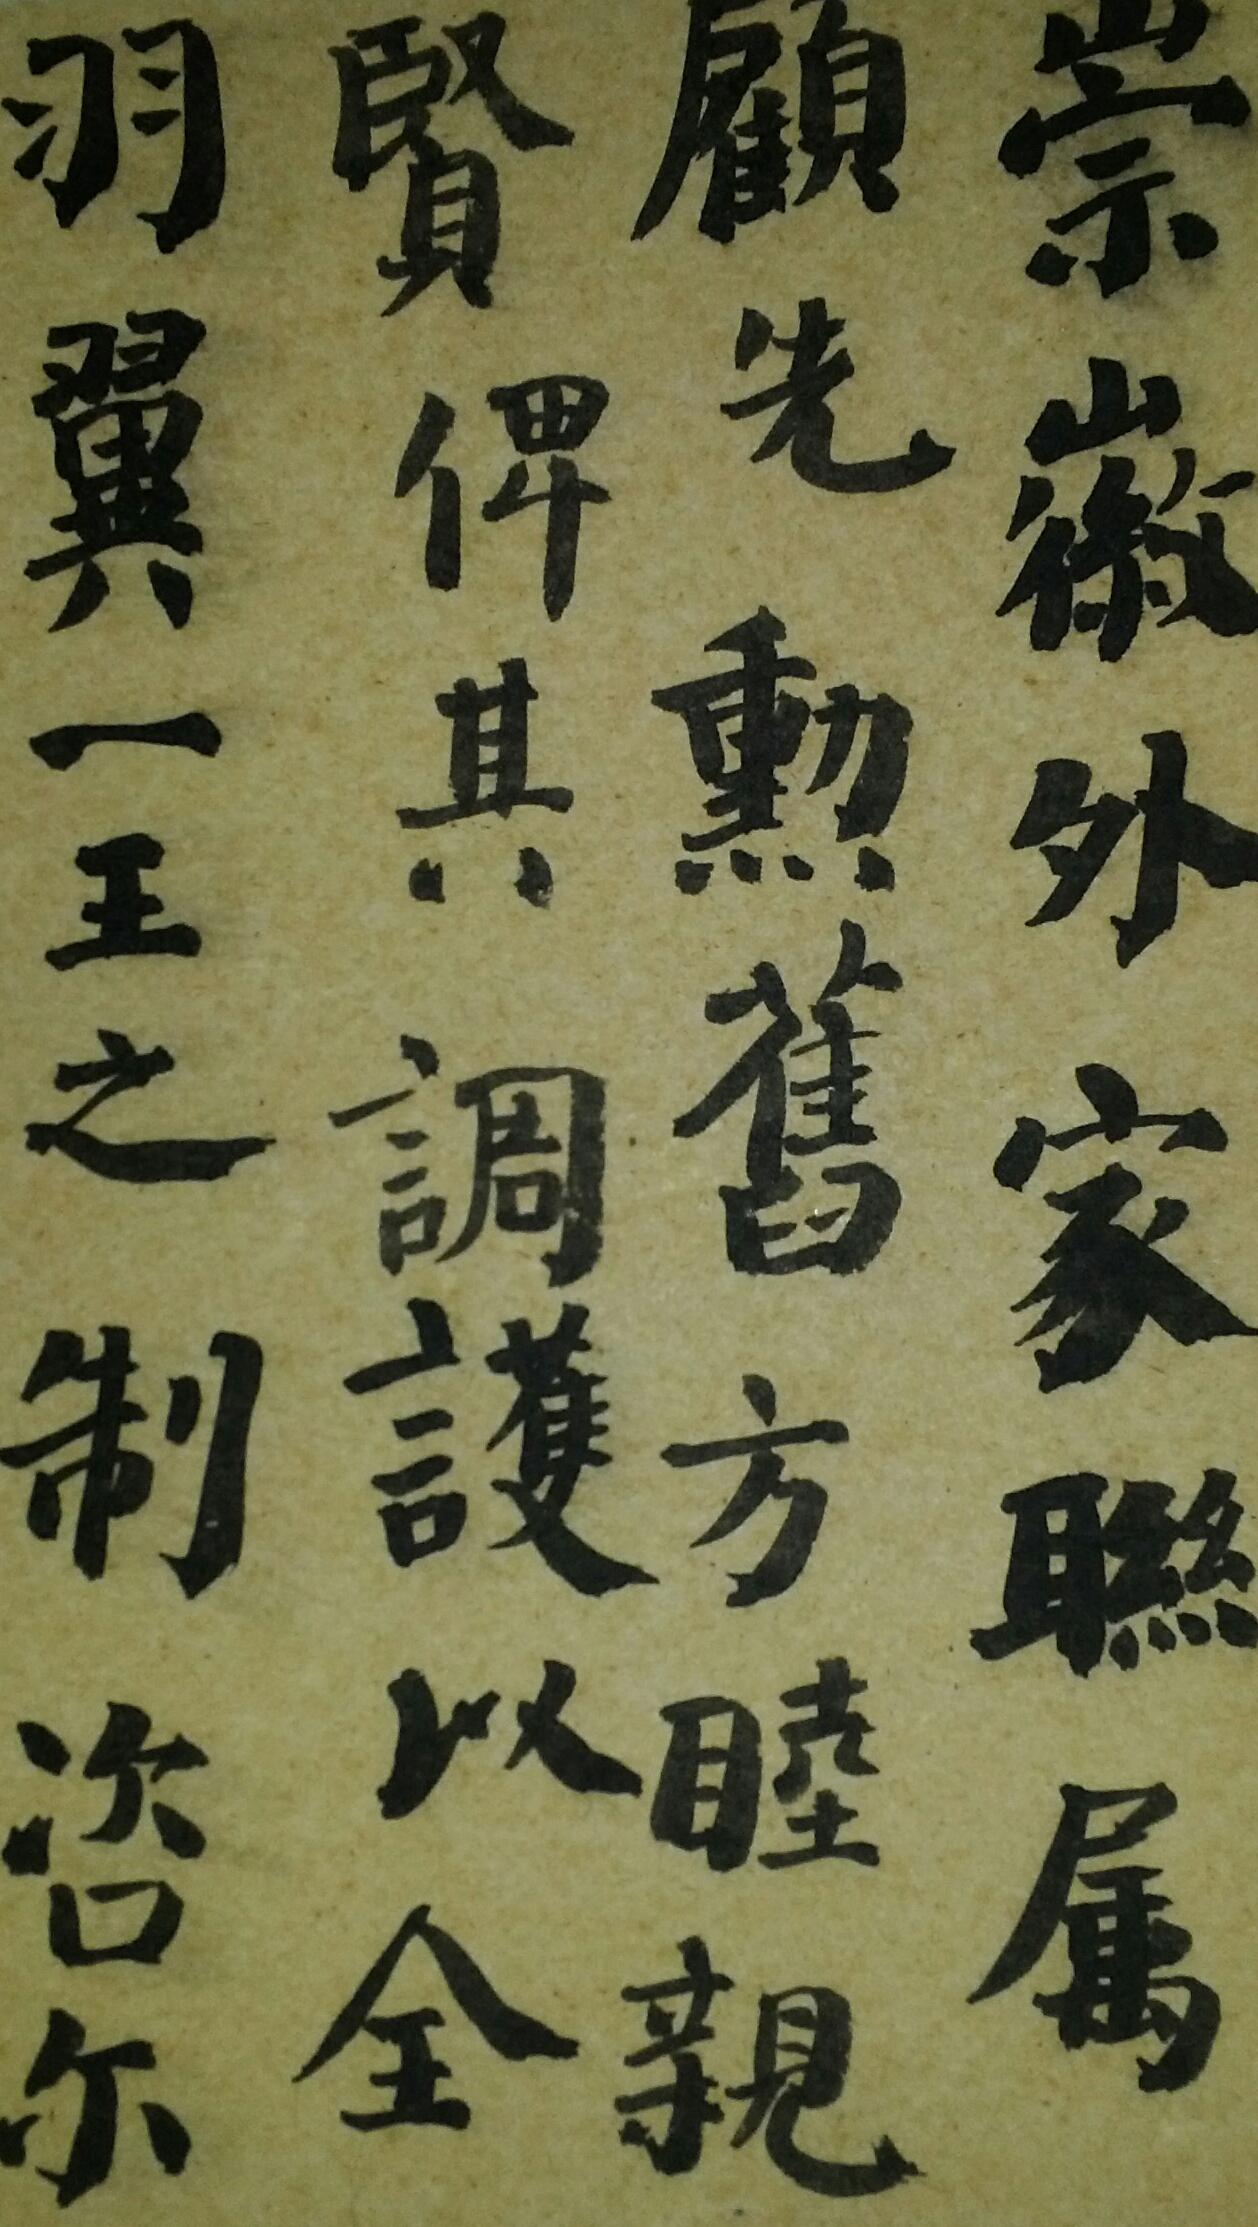 崇徽外家聯属
顧先勳舊方睦親
賢俾其調護以全
羽翼一王之制咨尔